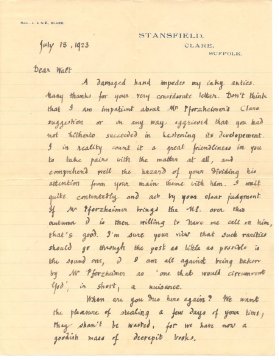 STANSFIELD,
CLARE,
SUFFOLK.
July 13, 1923
Dear Watt
A damaged hand impedes my inky antics.
Many thanks for your very considerate letter. Don't think
that I am impatient about Mr Pforzheimer's Clare
suggestion or in any way aggrieved that you had
not hitherto succeeded in hastening its development.
I in reality count it a great friendliness in you
to take pains with the matter at all, and
comprehend well the hazard of your dividing his
attention from your main theme with him. I wait
quite contentedly and act by your clear judgment.
If Mr Pforzheimer brings the MS. over this
autumn & is then willing to have me call on him,
that's good. I'm sure your view that such rarities
should go through the post as little as possible is
the sound one, & I am all against being taken
by Mr Pforzheimer as 'one that would circumvent
God', in short, a nuisance.
When are you two here again? We want
the pleasure of stealing a few days of your time;
they shan't be wasted, for we have now a
goodish mass of decrepit books.